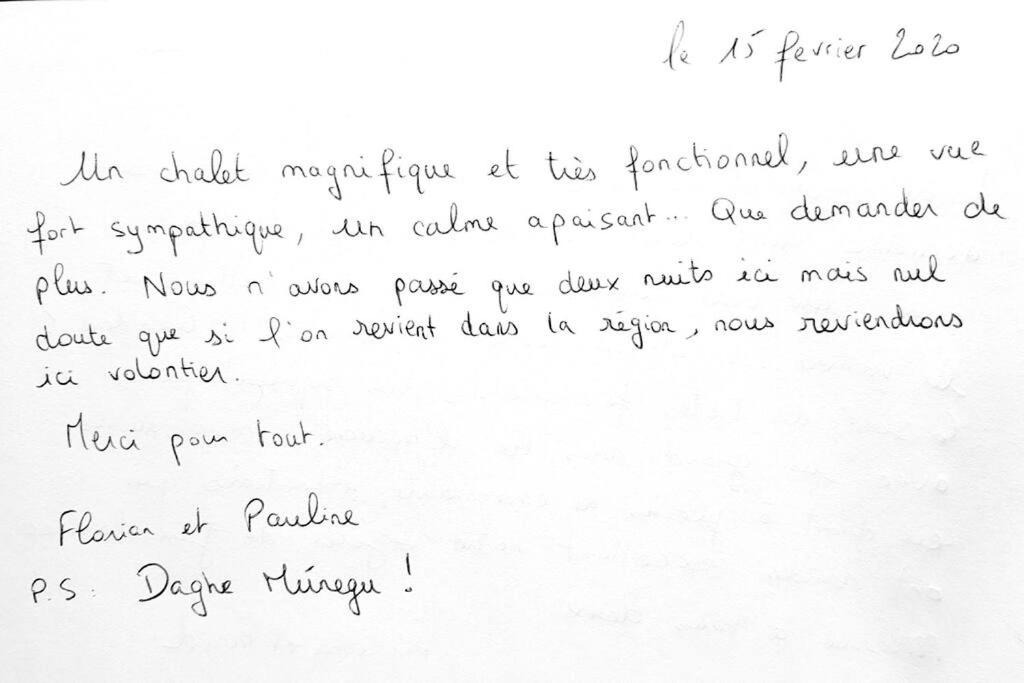 le 15 fevrier 2020
Un chalet magnifique et très fonctionnel, une vue
fort sympathique, un calme apaisant... Que demander de
plus. Nous n'avons passé que deux nuits ici mais nul
doute que si l'on revient dans la région, nous reviendrons
ici volontier.
Merci pour tout.
Florian et Pauline
P.S: Daghe Múregu !